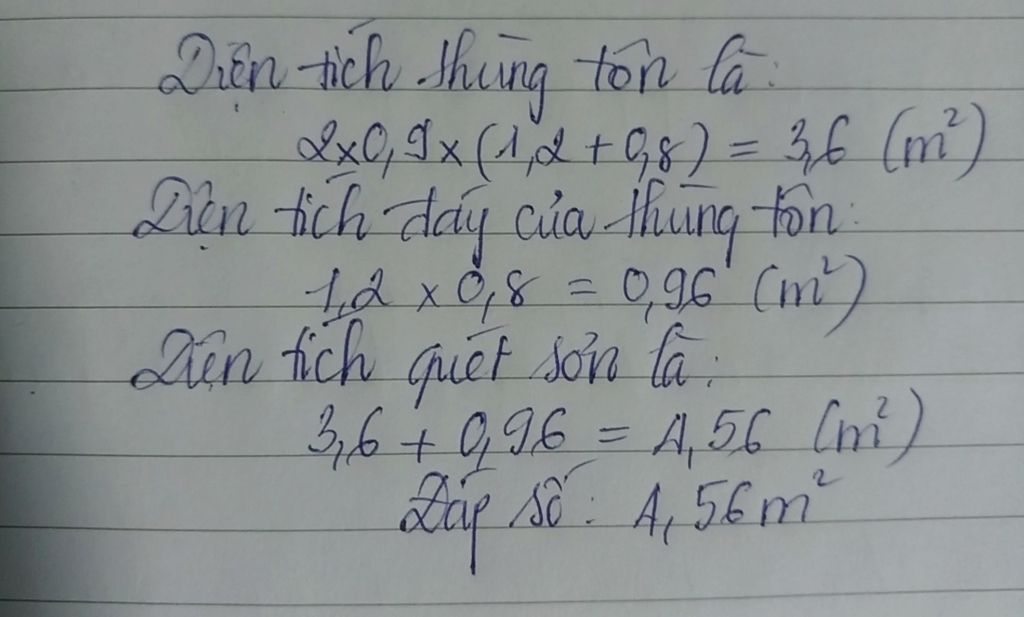 Diện tích thùng tôn là:
2x0,9x(1,2+0,8) = 3,6 (m²)
Diện tích đáy của thùng tôn:
1,2 x 0,8 = 0,96 (m²)
Diện tích quét sơn là:
3,6 + 0,96 = 4,56 (m²)
Đáp số: 4,56m²